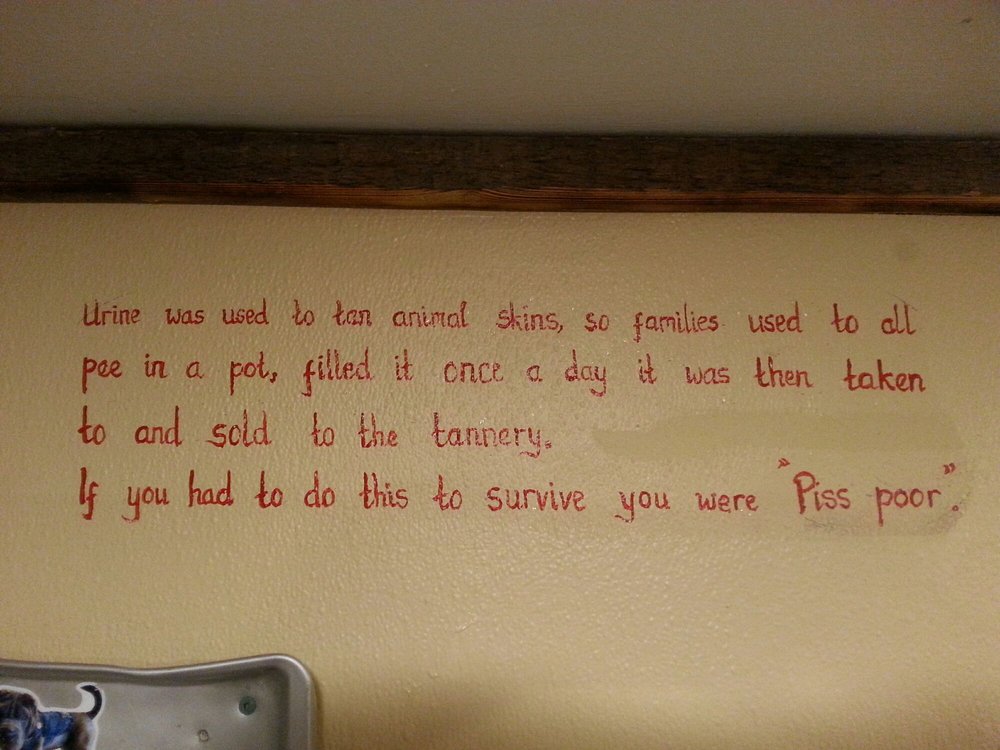 Urine was used to tan animal skins, so families used to all
pee in a pot, filled it once a day it was then taken
to and sold to the tannery.
If you had to do this to survive you were "Piss poor".